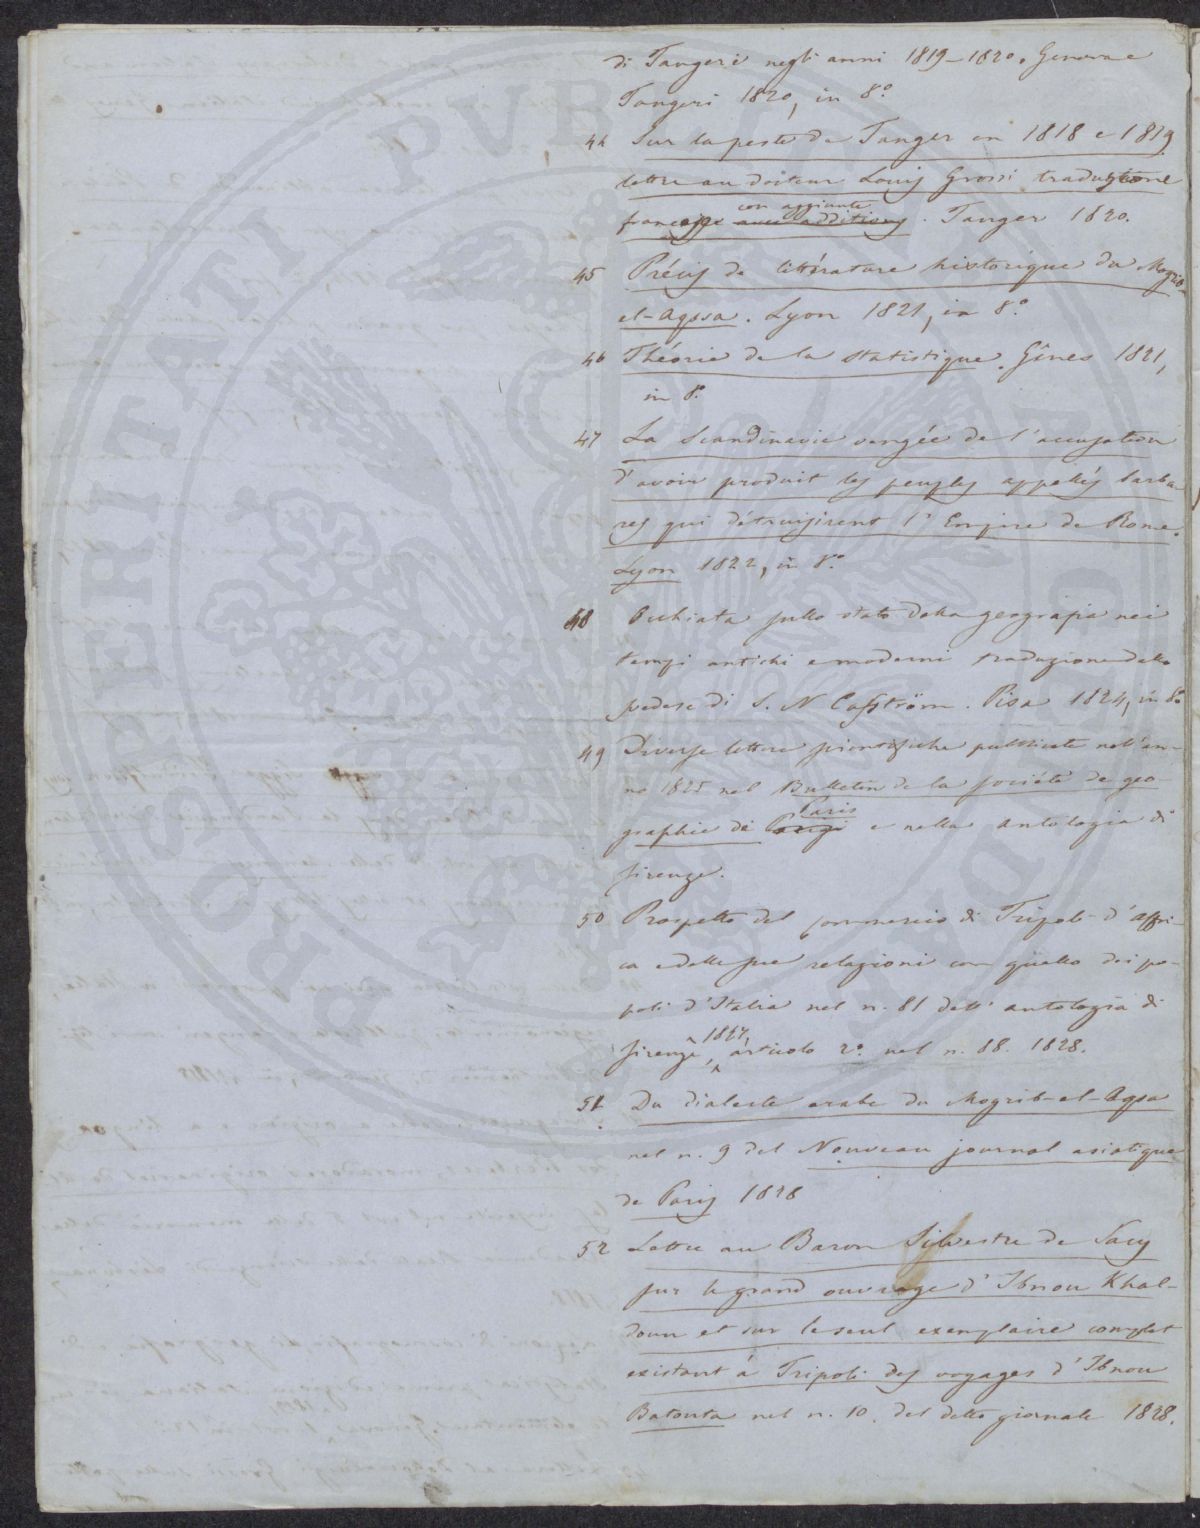 di Tangeri negli anni 1819-1820. Genova e
Tangeri 1820, in 8.º
44 Sur la peste de Tanger en 1818 e 1819
lettre au docteur Louis Grossi traduzione
francese con aggiunte avec additions. Tanger 1820.
45 Précis de littérature historique du Mogrib-
el-Aqssa. Lyon 1821, in 8.º
46 Théorie de la statistique. Gênes 1821,
in 8.º
47 La Scandinavie vengée de l'accusation
d'avoir produit les peuples appellés barba-
res qui détruisirent l'Empire de Rome.
Lyon 1822, in 8.º
48 Occhiata sullo stato della geografia nei
tempi antichi e moderni traduzione dallo
svedese di S. N. Casström. Pisa 1824, in 8.º
49 Diverse lettere scientifiche pubblicate nell'an-
no 1825 nel Bulletin de la société de géo-
graphie de Parigi Paris e nella antologia di
Firenze.
50 Prospetto del commercio di Tripoli d'Affri-
ca e delle sue relazioni con quello dei po-
poli d'Italia nel n. 81 dell'antologia di
Firenze 1827, articolo 2.º nel n. 88. 1828.
51 Du dialecte arabe du Mogrib-el-Aqsa
nel n. 9 del Nouveau journal asiatique
de Paris 1828
52 Lettre au Baron Silvestre de Sacy
sur le grand ouvrage d'Ibnou Khal-
doun et sur le seul exemplaire complet
existant à Tripoli des voyages d'Ibnou
Batouta nel n. 10. del detto giornale 1828.
PROSPERITATI PVBLICAE